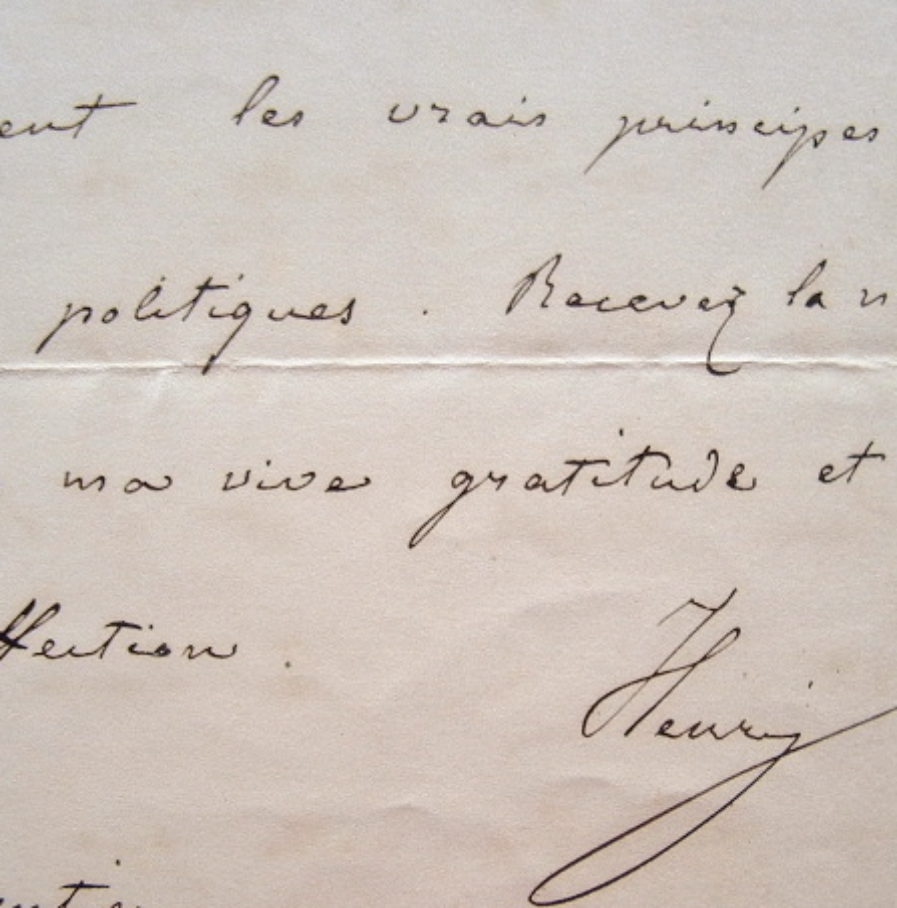 ent les vrais principes
politiques. Recevez la n
ma vive gratitude et
ffection.
Henry